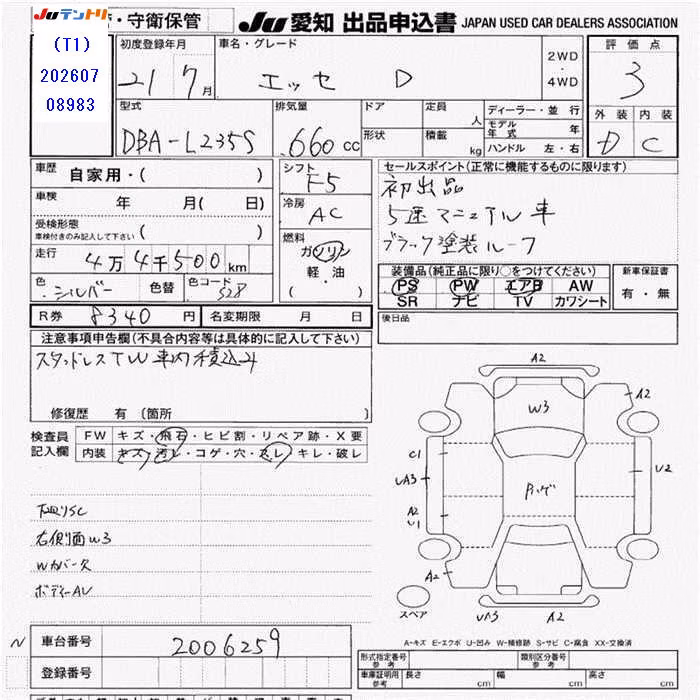 JUテントリ ・守衛保管 JU 愛知 出品申込書 JAPAN USED CAR DEALERS ASSOCIATION
(T1)
202607
08983
初度登録年月 車名・グレード 評価点
21 7月 エッセ D 2WD・4WD 3
型式 排気量 ドア 定員 人 ディーラー・並行 外装 内装
DBA-L235S 660 cc 形状 積載 kg モデル年式 年 D C
ハンドル 左・右
車歴 自家用・( ) シフト F5 セールスポイント(正常に機能するものに限ります)
車検 年 月( 日) 冷房 AC 初出品
受検形態 車検付きのみ記入して下さい ( ) 5速マニュアル車
走行 4万4千500km 燃料 ガソリン 軽・油 ( ) ブラック塗装ルーフ
色 シルバー 色替 色コード S28 装備品(純正品に限り○をつけてください) 新車保証書
PS PW エアB AW 有・無
SR ナビ TV カワシート
R券 8340円 名変期限 月 日 後日品
注意事項申告欄(不具合内容等は具体的に記入して下さい)
スタッドレスTW車内積込み
修復歴 有 (箇所 )
検査員記入欄 FW キズ・飛石・ヒビ割・リペア跡・X要
内装 キズ・汚レ・コゲ・穴・スレ・キレ・破レ
下廻りSC
右側面W3
Wカバー欠
ボディーAU
A2
W3 A2
C1
UA3 U2
A2
U1
A2
スペア UA3 A2
A-キズ E-エクボ U-凹み W-補修跡 S-サビ C-腐食 XX-交換済
N 車台番号 2006259
登録番号
形式指定番号 参考 類別区分番号 参考
車庫証明用 参考 長さ cm 幅 cm 高さ cm